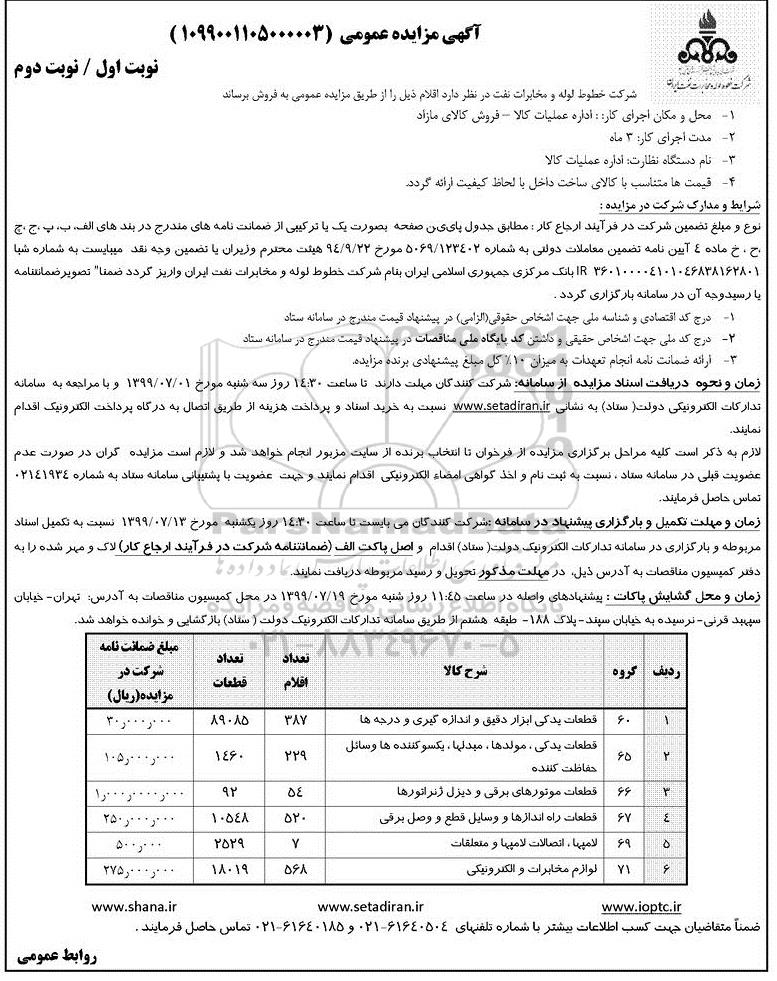 آگهی مزایده عمومی (۱۰۹۹۰۰۱۱۰۵۰۰۰۰۰۳)
نوبت اول / نوبت دوم
شرکت خطوط لوله و مخابرات نفت ایران
شرکت خطوط لوله و مخابرات نفت در نظر دارد اقلام ذیل را از طریق مزایده عمومی به فروش برساند
۱- محل و مکان اجرای کار: : اداره عملیات کالا – فروش کالای مازاد
۲- مدت اجرای کار: ۳ ماه
۳- نام دستگاه نظارت: اداره عملیات کالا
۴- قیمت ها متناسب با کالای ساخت داخل با لحاظ کیفیت ارائه گردد.
شرایط و مدارک شرکت در مزایده :
نوع و مبلغ تضمین شرکت در فرآیند ارجاع کار : مطابق جدول پایین صفحه بصورت یک یا ترکیبی از ضمانت نامه های مندرج در بند های الف، ب، پ ،ج ،چ
،ح ، خ ماده ٤ آیین نامه تضمین معاملات دولتی به شماره ۵۰۶۹/۱۲۳۴۰۲ مورخ ۹۴/۹/۲۲ هیئت محترم وزیران یا تضمین وجه نقد میبایست به شماره شبا
IR ۳۶۰۱۰۰۰۰۴۱۰۱۰۴۶۸۳۸۱۶۲۸۰۱ بانک مرکزی جمهوری اسلامی ایران بنام شرکت خطوط لوله و مخابرات نفت ایران واریز گردد ضمنا" تصویرضمانتنامه
یا رسیدوجه آن در سامانه بارگزاری گردد .
۱- درج کد اقتصادی و شناسه ملی جهت اشخاص حقوقی(الزامی) در پیشنهاد قیمت مندرج در سامانه ستاد
۲- درج کد ملی جهت اشخاص حقیقی و داشتن کد پایگاه ملی مناقصات در پیشنهاد قیمت مندرج در سامانه ستاد
۳- ارائه ضمانت نامه انجام تعهدات به میزان ۱۰٪ کل مبلغ پیشنهادی برنده مزایده.
زمان و نحوه دریافت اسناد مزایده از سامانه: شرکت کنندگان مهلت دارند تا ساعت ۱۴:۳۰ روز سه شنبه مورخ ۱۳۹۹/۰۷/۰۱ و با مراجعه به سامانه
تدارکات الکترونیکی دولت( ستاد) به نشانی www.setadiran.ir نسبت به خرید اسناد و پرداخت هزینه از طریق اتصال به درگاه پرداخت الکترونیک اقدام
نمایند.
لازم به ذکر است کلیه مراحل برگزاری مزایده از فرخوان تا انتخاب برنده از سایت مزبور انجام خواهد شد و لازم است مزایده گران در صورت عدم
عضویت قبلی در سامانه ستاد ، نسبت به ثبت نام و اخذ گواهی امضاء الکترونیکی اقدام نمایند و جهت عضویت با پشتیبانی سامانه ستاد به شماره ۰۲۱۴۱۹۳۴
تماس حاصل فرمایند.
زمان و مهلت تکمیل و بارگزاری پیشنهاد در سامانه :شرکت کنندگان می بایست تا ساعت ۱۴:۳۰ روز یکشنبه مورخ ۱۳۹۹/۰۷/۱۳ نسبت به تکمیل اسناد
مربوطه و بارگزاری در سامانه تدارکات الکترونیک دولت( ستاد) اقدام و اصل پاکت الف (ضمانتنامه شرکت در فرآیند ارجاع کار) لاک و مهر شده را به
دفتر کمیسیون مناقصات به آدرس ذیل، در مهلت مذکور تحویل و رسید مربوطه دریافت نمایند.
زمان و محل گشایش پاکات : پیشنهادهای واصله در ساعت ۱۱:۴۵ روز شنبه مورخ ۱۳۹۹/۰۷/۱۹ در محل کمیسیون مناقصات به آدرس: تهران- خیابان
سپهبد قرنی-نرسیده به خیابان سپند-پلاک ۱۸۸- طبقه هشتم از طریق سامانه تدارکات الکترونیک دولت ( ستاد) بازگشایی و خوانده خواهد شد.
ردیف گروه شرح کالا تعداد اقلام تعداد قطعات مبلغ ضمانت نامه شرکت در مزایده(ریال)
۱ ۶۰ قطعات یدکی ابزار دقیق و اندازه گیری و درجه ها ۳۸۷ ۸۹۰۸۵ ۳۰,۰۰۰,۰۰۰
۲ ۶۵ قطعات یدکی ، مولدها ، مبدلها ، یکسوکننده ها وسائل حفاظت کننده ۲۲۹ ۱۴۶۰ ۱۰۵,۰۰۰,۰۰۰
۳ ۶۶ قطعات موتورهای برقی و دیزل ژنراتورها ۵٤ ۹۲ ۱,۰۰۰,۰۰۰۰,۰۰۰
٤ ۶۷ قطعات راه اندازها و وسایل قطع و وصل برقی ۵۲۰ ۱۰۵۴۸ ۲۵۰,۰۰۰,۰۰۰
۵ ۶۹ لامپها ، اتصالات لامپها و متعلقات ۷ ۲۵۲۹ ۵۰۰,۰۰۰
۶ ۷۱ لوازم مخابرات و الکترونیکی ۵۶۸ ۱۸۰۱۹ ۲۷۵,۰۰۰,۰۰۰
www.ioptc.ir www.setadiran.ir www.shana.ir
ضمناً متقاضیان جهت کسب اطلاعات بیشتر با شماره تلفنهای ۶۱۶۴۰۵۰۴-۰۲۱ و ۶۱۶۴۰۱۸۵-۰۲۱ تماس حاصل فرمایند .
روابط عمومی
ParsNamadData
پایگاه اطلاع رسانی مناقصه و مزایده
۰۲۱-۸۸۳۴۹۶۷۰-۵